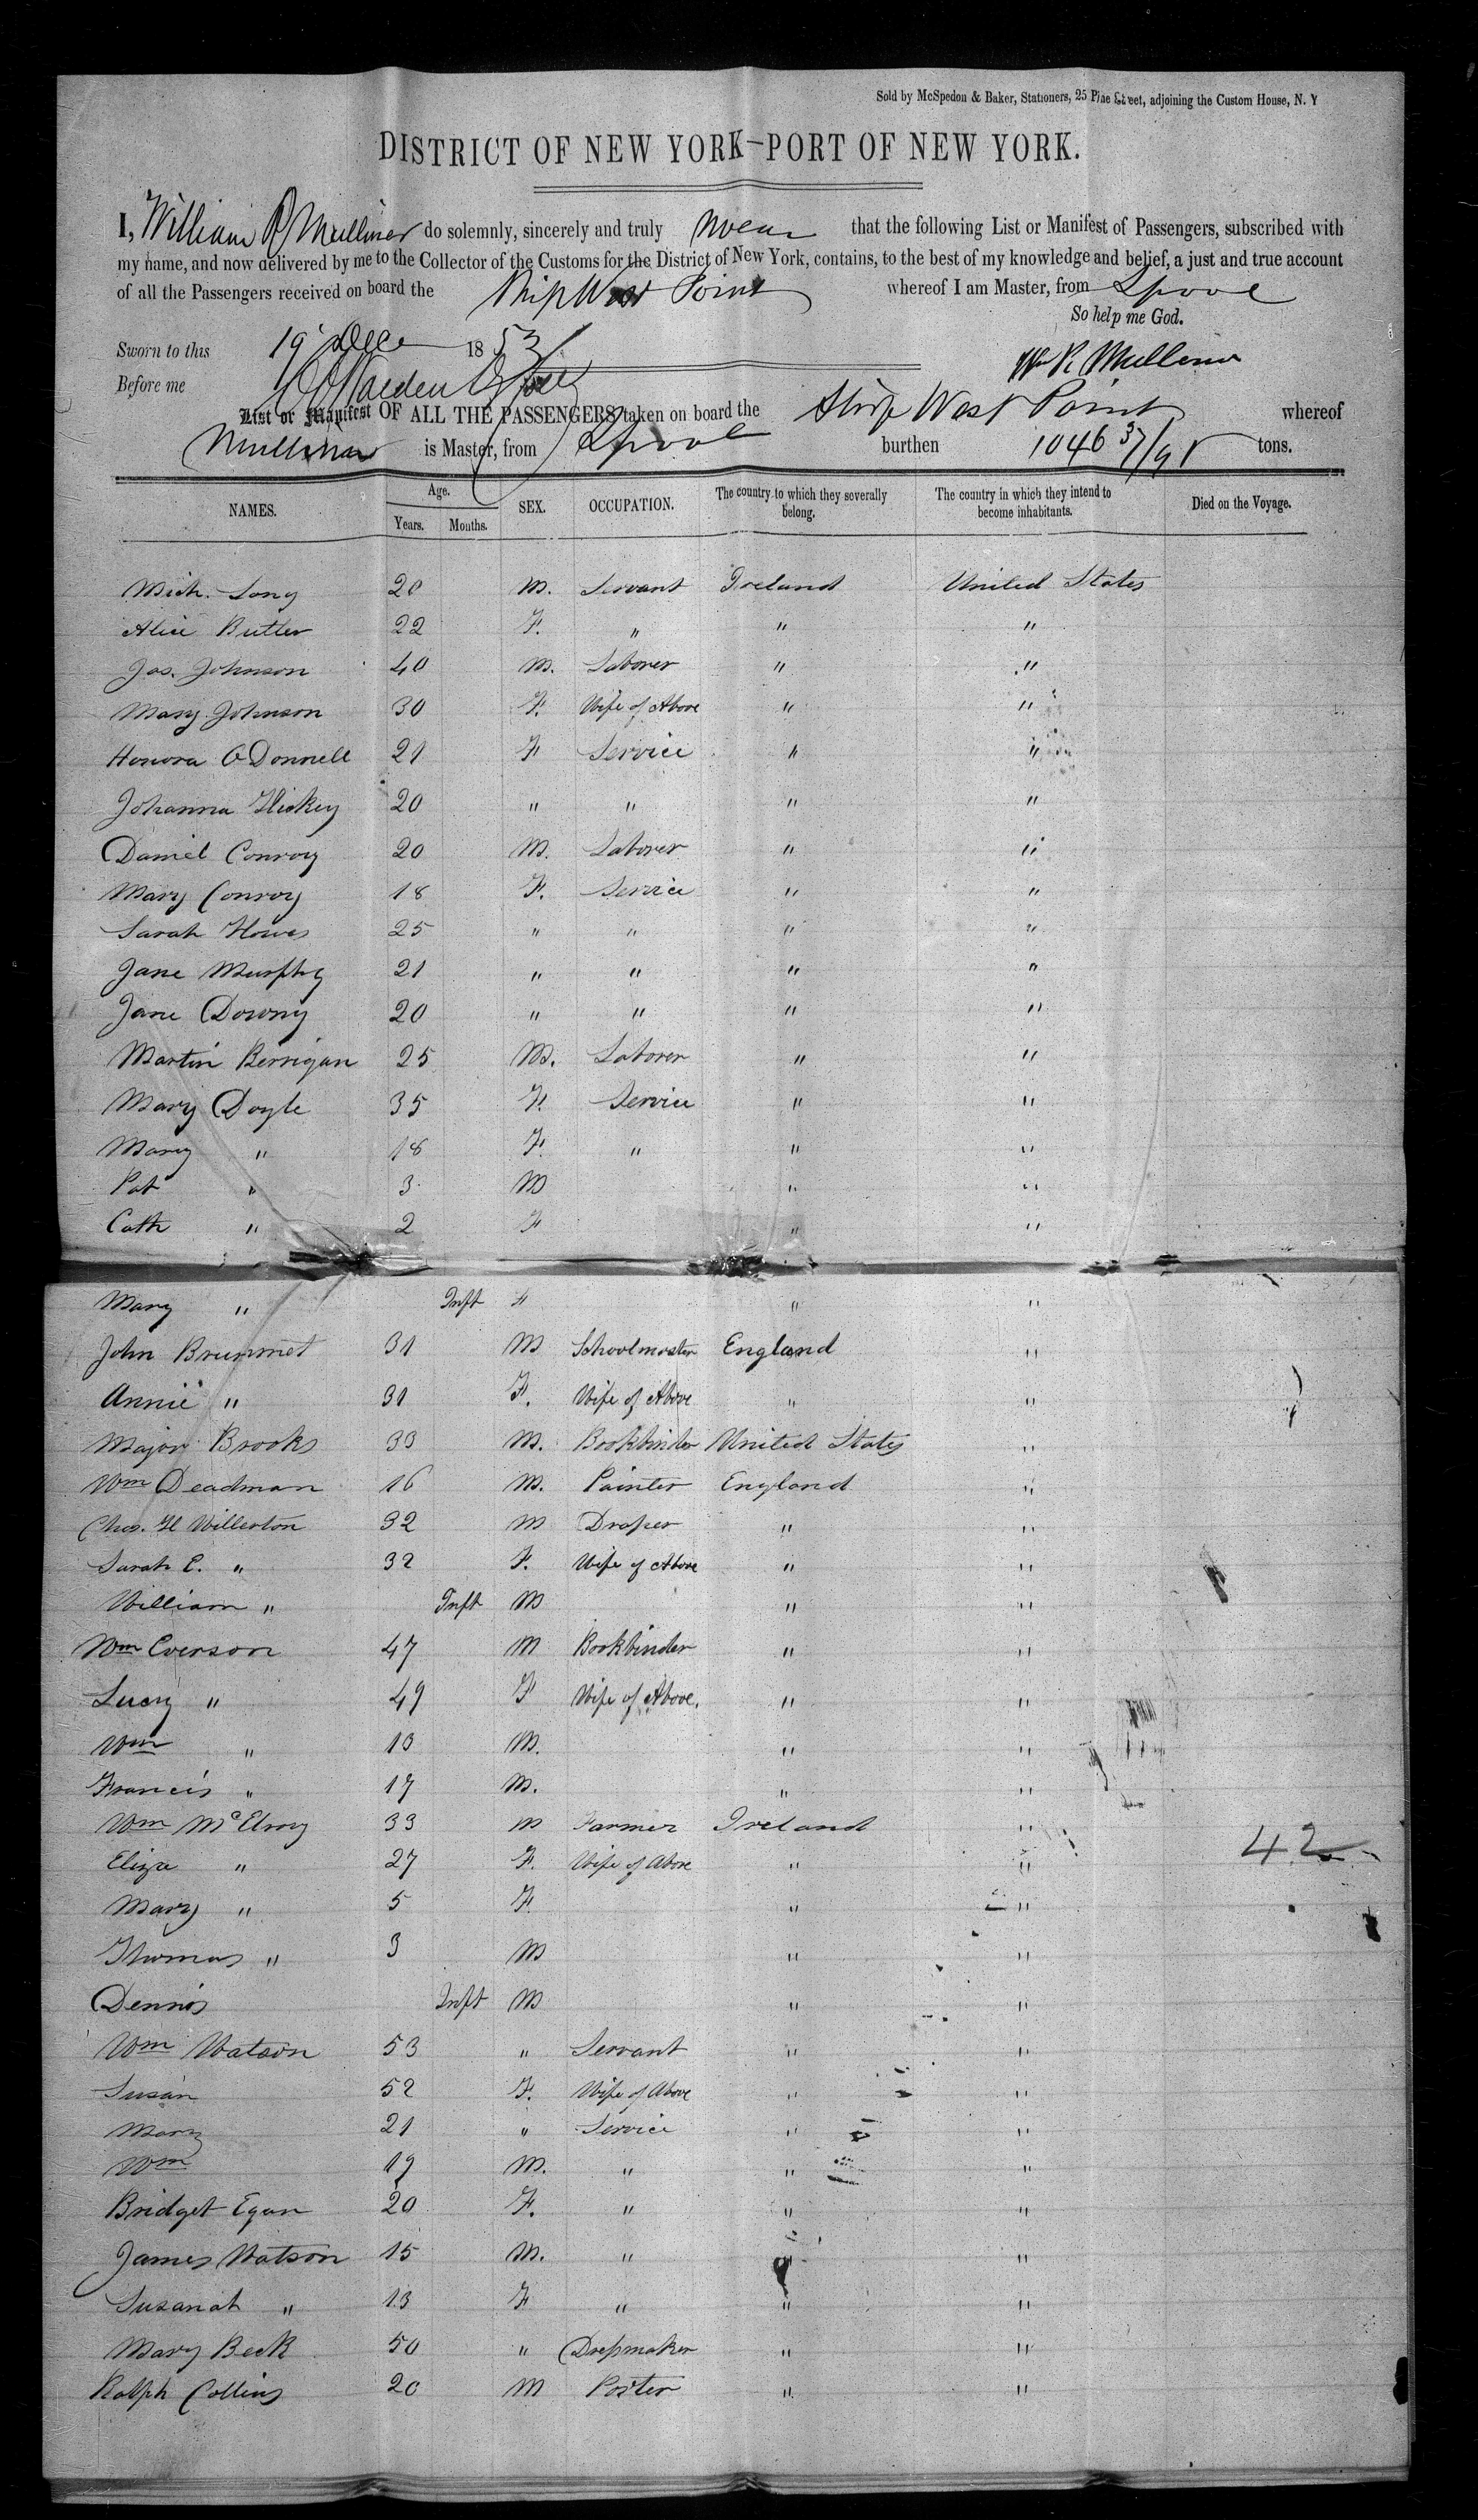 Sold by McSpedon & Baker, Stationers, 25 Pine Street, adjoining the Custom House, N. Y
DISTRICT OF NEW YORK—PORT OF NEW YORK.
I, William R Mulliner do solemnly, sincerely and truly swear that the following List or Manifest of Passengers, subscribed with
my name, and now delivered by me to the Collector of the Customs for the District of New York, contains, to the best of my knowledge and belief, a just and true account
of all the Passengers received on board the Ship West Point whereof I am Master, from Lpool
So help me God.
Sworn to this 19 Dec 1853
Wm R Mulliner
Before me
List or Manifest OF ALL THE PASSENGERS taken on board the Ship West Point whereof
Mulliner is Master, from Lpool burthen 1046 37/95 tons.
NAMES. Age. Years. Months. SEX. OCCUPATION. The country to which they severally belong. The country in which they intend to become inhabitants. Died on the Voyage.
Mich. Long 20 M. Servant Ireland United States
Alice Butler 22 F. " " "
Jas. Johnson 40 M. Laborer " "
Mary Johnson 30 F. Wife of Above " "
Honora O'Donnell 21 F Service " "
Johanna Hickey 20 " " " "
Daniel Conroy 20 M. Laborer " "
Mary Conroy 18 F. Service " "
Sarah Howes 25 " " " "
Jane Murphy 21 " " " "
Jane Downy 20 " " " "
Martin Berrigan 25 M. Laborer " "
Mary Doyle 35 F. Service " "
Mary " 18 F. " " "
Pat " 3 M " "
Cath " 2 F " "
Mary " Inft F " "
John Brummet 31 M Schoolmaster England "
Annie " 31 F. Wife of Above " "
Major Brooks 33 M. Bookbinder United States "
Wm Deadman 16 M. Painter England "
Chas. H Willerton 32 M Draper " "
Sarah E. " 32 F. Wife of Above " "
William " Inft M " "
Wm Everson 47 M Bookbinder " "
Lucy " 49 F Wife of Above. " "
Wm " 13 M. " "
Francis " 17 M. " "
Wm McElroy 33 M Farmer Ireland "
Eliza " 27 F. Wife of Above " " 42
Mary " 5 F. " "
Thomas " 3 M " "
Dennis Inft M " "
Wm Watson 53 " Servant " "
Susan 52 F. Wife of Above " "
Mary 21 " Service " "
Wm 19 M. " " "
Bridget Egan 20 F. " " "
James Watson 15 M. " " "
Susanah " 13 F " " "
Mary Beck 50 " Dressmaker " "
Ralph Collins 20 M Porter " "